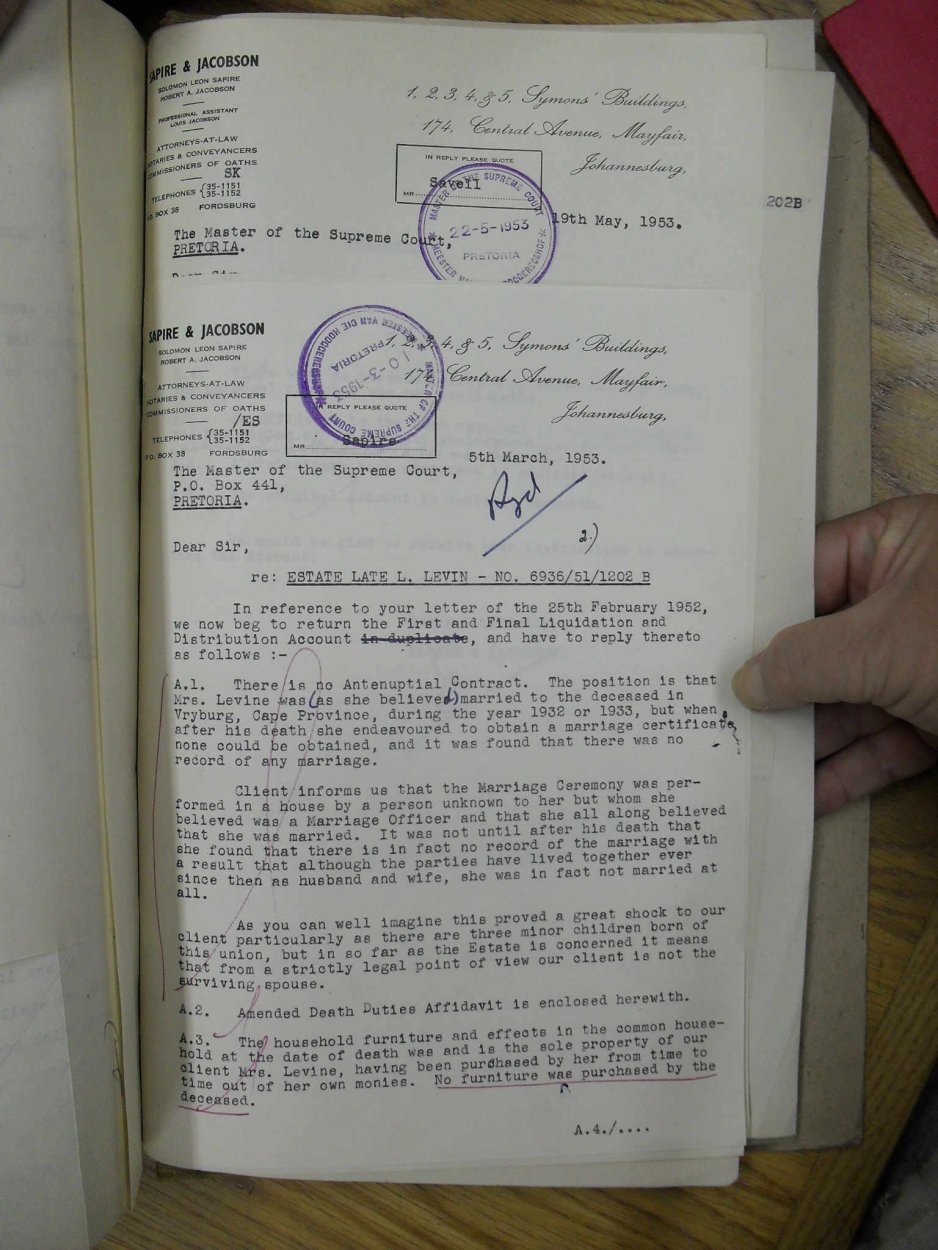 SAPIRE & JACOBSON
SOLOMON LEON SAPIRE
ROBERT A. JACOBSON
PROFESSIONAL ASSISTANT
LOUIS JACOBSON
ATTORNEYS-AT-LAW
NOTARIES & CONVEYANCERS
COMMISSIONERS OF OATHS
SK
TELEPHONES {35-1151
35-1152
P.O. BOX 38 FORDSBURG
1, 2, 3, 4, & 5, Symons' Buildings,
174, Central Avenue, Mayfair,
Johannesburg,
IN REPLY PLEASE QUOTE
MR. Savell
MASTER OF THE SUPREME COURT
22-5-1953
PRETORIA
202B
19th May, 1953.
The Master of the Supreme Court,
PRETORIA.
Dear Sir
SAPIRE & JACOBSON
SOLOMON LEON SAPIRE
ROBERT A. JACOBSON
ATTORNEYS-AT-LAW
NOTARIES & CONVEYANCERS
COMMISSIONERS OF OATHS
/ES
TELEPHONES {35-1151
35-1152
P.O. BOX 38 FORDSBURG
1, 2, 3, 4, & 5, Symons' Buildings,
174, Central Avenue, Mayfair,
Johannesburg,
MASTER OF THE SUPREME COURT
10-3-1953
PRETORIA
IN REPLY PLEASE QUOTE
MR. Sapire
5th March, 1953.
The Master of the Supreme Court,
P.O. Box 441,
PRETORIA.
2.)
Dear Sir,
re: ESTATE LATE L. LEVIN - NO. 6936/51/1202 B
In reference to your letter of the 25th February 1952,
we now beg to return the First and Final Liquidation and
Distribution Account in duplicate, and have to reply thereto
as follows :-
A.1. There is no Antenuptial Contract. The position is that
Mrs. Levine was (as she believed) married to the deceased in
Vryburg, Cape Province, during the year 1932 or 1933, but when,
after his death she endeavoured to obtain a marriage certificate,
none could be obtained, and it was found that there was no
record of any marriage.
Client informs us that the Marriage Ceremony was per-
formed in a house by a person unknown to her but whom she
believed was a Marriage Officer and that she all along believed
that she was married. It was not until after his death that
she found that there is in fact no record of the marriage with
a result that although the parties have lived together ever
since then as husband and wife, she was in fact not married at
all.
As you can well imagine this proved a great shock to our
client particularly as there are three minor children born of
this union, but in so far as the Estate is concerned it means
that from a strictly legal point of view our client is not the
surviving spouse.
A.2. Amended Death Duties Affidavit is enclosed herewith.
A.3. The household furniture and effects in the common house-
hold at the date of death was and is the sole property of our
client Mrs. Levine, having been purchased by her from time to
time out of her own monies. No furniture was purchased by the
deceased.
A.4./....